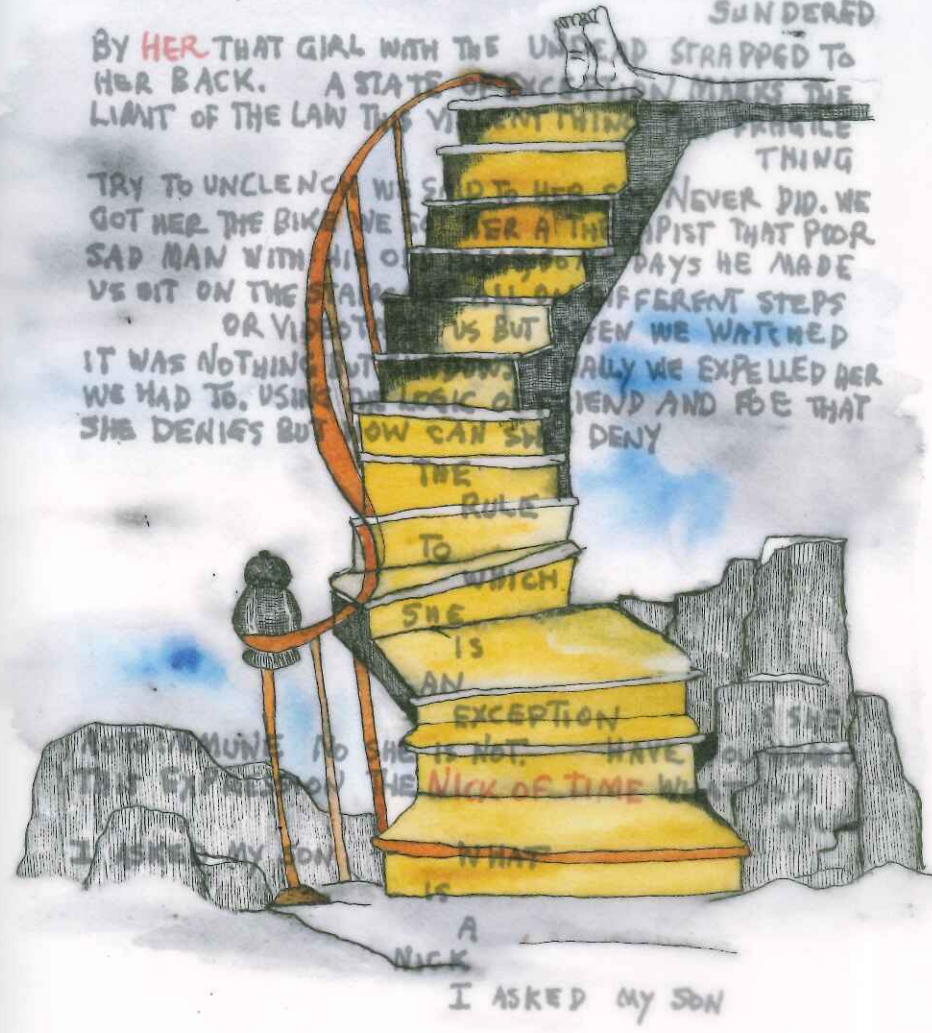 SUNDERED
BY HER THAT GIRL WITH THE UNDEAD STRAPPED TO
HER BACK. A STATE OF EXCEPTION MARKS THE
LIMIT OF THE LAW THIS VIOLENT THING FRAGILE
THING
TRY TO UNCLENCH WE SAID TO HER SHE NEVER DID. WE
GOT HER THE BIKE WE GOT HER A THERAPIST THAT POOR
SAD MAN WITH HIS DAYS HE MADE
US SIT ON THE ALL ON DIFFERENT STEPS
OR VIDEOTAPED US BUT WHEN WE WATCHED
IT WAS NOTHING BUT WE EXPELLED HER
WE HAD TO. USING THE LOGIC OF FRIEND AND FOE THAT
SHE DENIES BUT HOW CAN SHE DENY
THE
RULE
TO
WHICH
SHE
IS
AN
EXCEPTION IS SHE
AUTOIMMUNE NO SHE IS NOT. HAVE YOU HEARD
THIS EXPRESSION THE NICK OF TIME WHAT IS A
NICK
I ASKED MY SON WHAT
IS
A
NICK
I ASKED MY SON